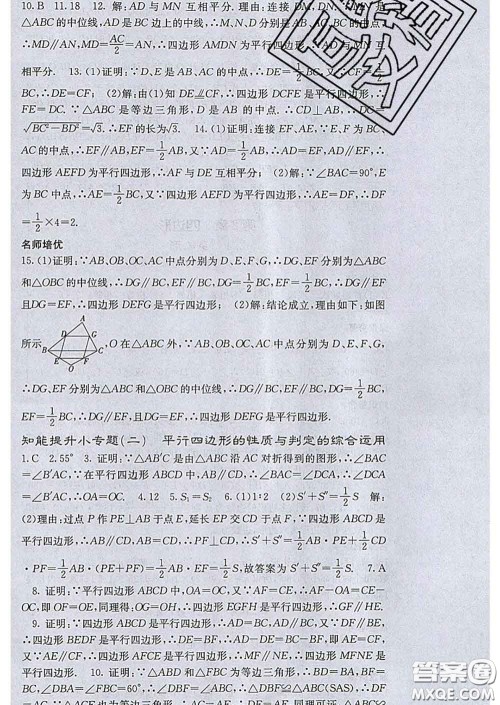 10.B 11.18 12. 解:AD 与 MN 互相平分. 理由:连接 DM,DN,
△ABC 的中位线,AD 是 BC 边上的中线,∴M、N、D 分别是 AB、AC、BC
∴MD∥AN,MD=AC/2=AN,∴四边形 AMDN 为平行四边形,∴AD 与 MN 互
相平分. 13.(1)证明:∵D、E 是 AB、AC 的中点,∴DE∥CF,DE=1/2
BC,∴DE=FC;(2)解:由(1)知 DE∥CF,∴四边形 DCFE 是平行四边形,∴
FE=DC. ∵△ABC 是等边三角形,D 是 AB 的中点,∴CD⊥AB,∴DC=
√BC²-BD²=√3.∴EF 的长为√3. 14.(1)证明:连接 EF,AE,∵E、F 为 BC、
AC 的中点,∴EF∥AB,EF=1/2AB,又∵AD=1/2AB,∴AD=EF,AD∥EF,∴
四边形 AEFD 为平行四边形,∴AF 与 DE 互相平分;(2)解:∵∠BAC=90°,E
为 BC 中点,∴AE=1/2BC,又∵四边形 AEFD 为平行四边形,∴AE=DF,∴DF
=1/2×4=2.
名师培优
15.(1)证明:∵AB,OB,OC,AC 中点分别为 D、E、F、G,∴DG、EF 分别为△ABC
和△OBC 的中位线,∴DG∥BC,DG=1/2BC,EF∥BC,EF=1/2BC,∴DG∥EF
且DG=EF,∴四边形 DEFG 是平行四边形;(2)解:结论成立,理由如下:如图
所示
A
D
G
B
C
E
F
O
,O 在△ABC 外,∵AB、OB、OC、AC 中点分别为 D、E、F、G,
∴DG、EF 分别为△ABC 和△OBC 的中位线,∴DG∥BC,DG=1/2BC,EF∥BC,
EF=1/2BC,∴DG∥EF 且 DG=EF,∴四边形 DEFG 是平行四边形.
知能提升小专题(二) 平行四边形的性质与判定的综合运用
1.C 2.55° 3. 证明:∵△AB′C 是由△ABC 沿 AC 对折得到的图形,∴∠BAC
=∠B′AC,∵在平行四边形 ABCD 中,AB∥CD,∴∠BAC=∠DCA,∴∠DCA
=∠B′AC,∴OA=OC. 4.12 5.S₁=S₂ 6.(1)1∶2 (2)S′+S″=1/2S 解:
(2)理由:过点 P 作 PE⊥AB 于点 E,延长 EP 交 CD 于点 F,∵四边形 ABCD
是平行四边形,∴AB=CD,AB∥CD,∴PF⊥CD,∴S′+S″=1/2AB·PE+1/2CD
·PF=1/2AB·(PE+PF)=1/2AB·EF=1/2S,故答案为 S′+S″=1/2S. 7.A
8. 证明:∵平行四边形 ABCD 中,OA=OC,又∵AF=CE,∴AF-OA=CE-
OC,即 OF=OE,同理得:OG=OH,∴四边形 EGFH 是平行四边形,∴GF∥HE.
9. 证明:∵四边形 ABCD 是平行四边形,∴AD=BC,AD∥BC,又∵DE=BF,∴
四边形 BEDF 是平行四边形,∴DE=BF,∴AD-DE=BC-BF,即 AE=CF,
又∵AE∥CF,∴四边形 AFCE 是平行四边形,∴MF∥NE,∴四边形 MFNE 是
平行四边形. 10. 证明:(1)∵△ABD 和△FBC 为等边三角形,∴BD=BA,BF=
BC,∠DBA=∠FBC=60°,∴∠DBF=∠ABC,∴△DBF≌△ABC(SAS),∴DF=
答案圈
MXQE.COM